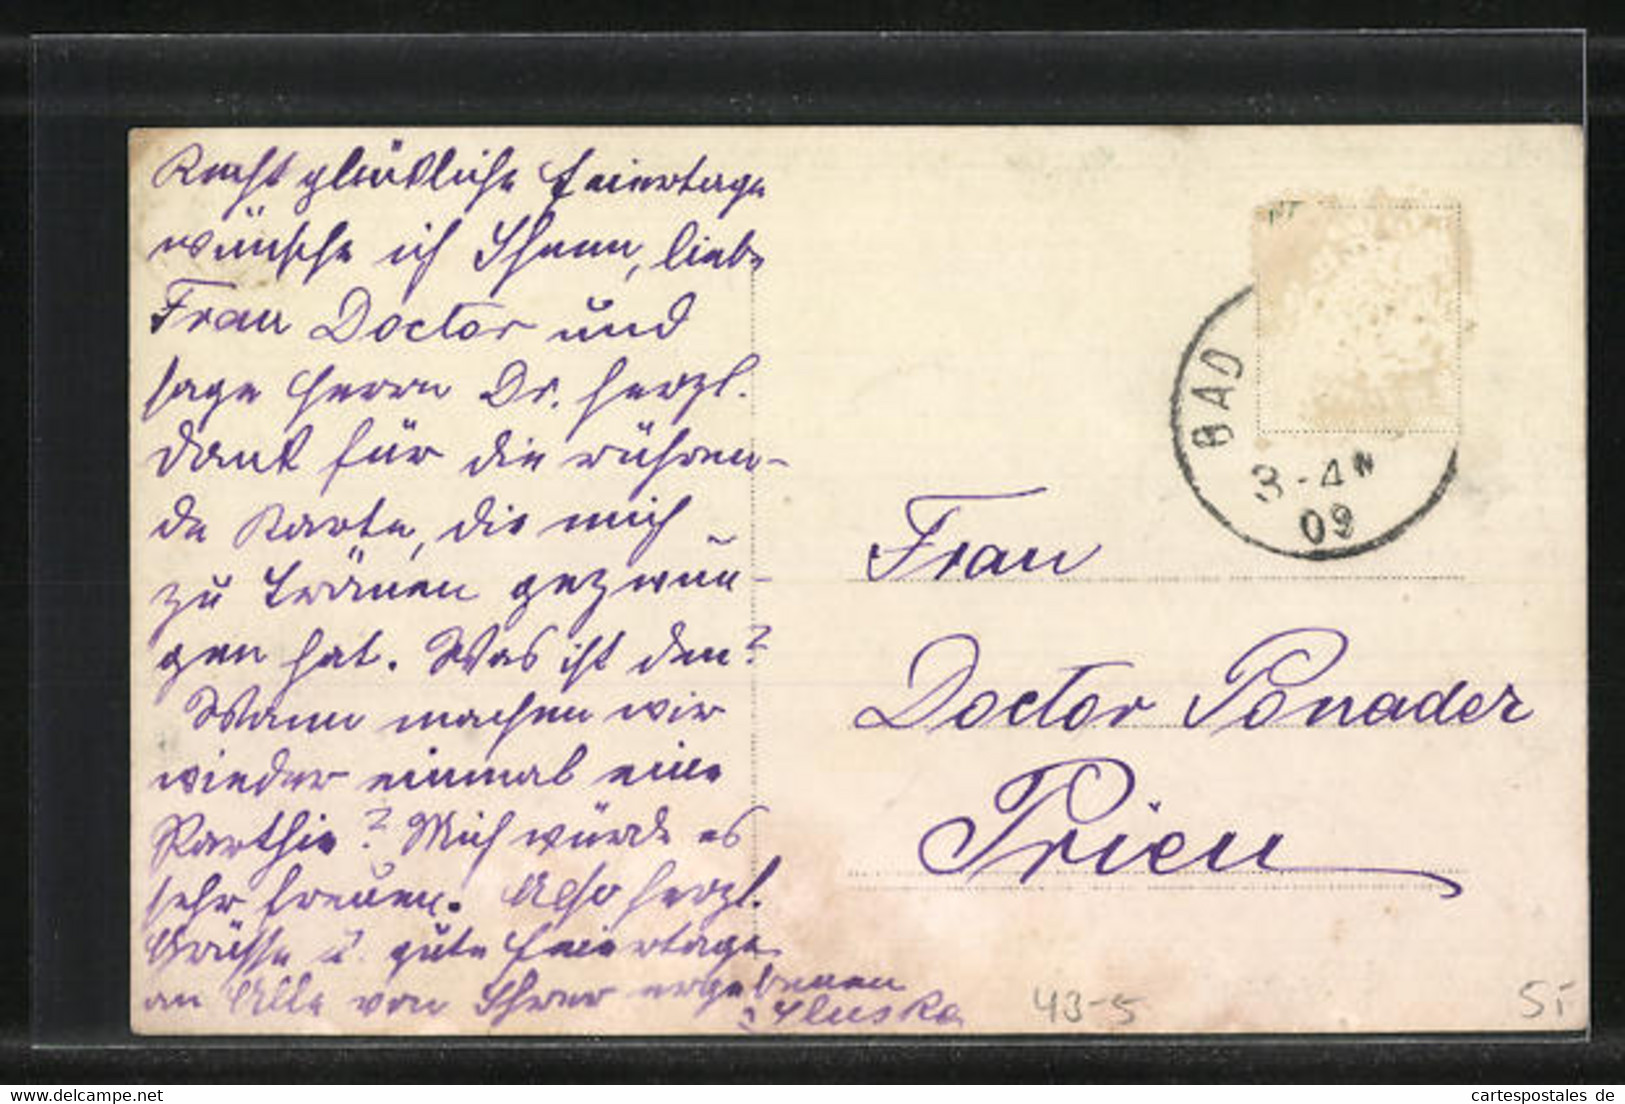 Recht glückliche Feiertage
wünsche ich Ihnen, liebe
Frau Doctor und
sage Herrn Dr. herzl.
Dank für die rühren-
de Karte, die mich
zu Tränen gezwun-
gen hat. Was ist den?
Wann machen wir
wieder einmal eine
Parthie? Mich würde es
sehr freuen. Also herzl.
Grüsse u. gute Feiertage
an Alle von Ihrer ergebenen
BAD
3-4 N
09
Frau
Doctor Ponader
Prien
43-5
cartespostales de